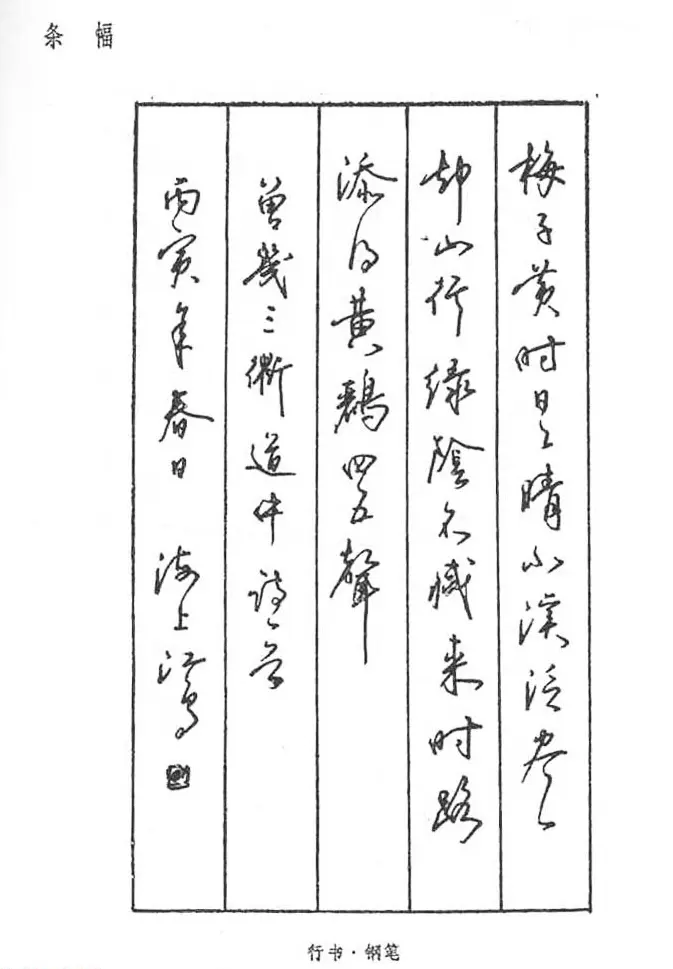 条幅
梅子黄时日々晴小溪泛尽
却山行绿陰不减来时路
添得黄鹂四五聲
曾幾三衢道中诗一首
丙寅年春日 海上江鸟
行书·钢笔